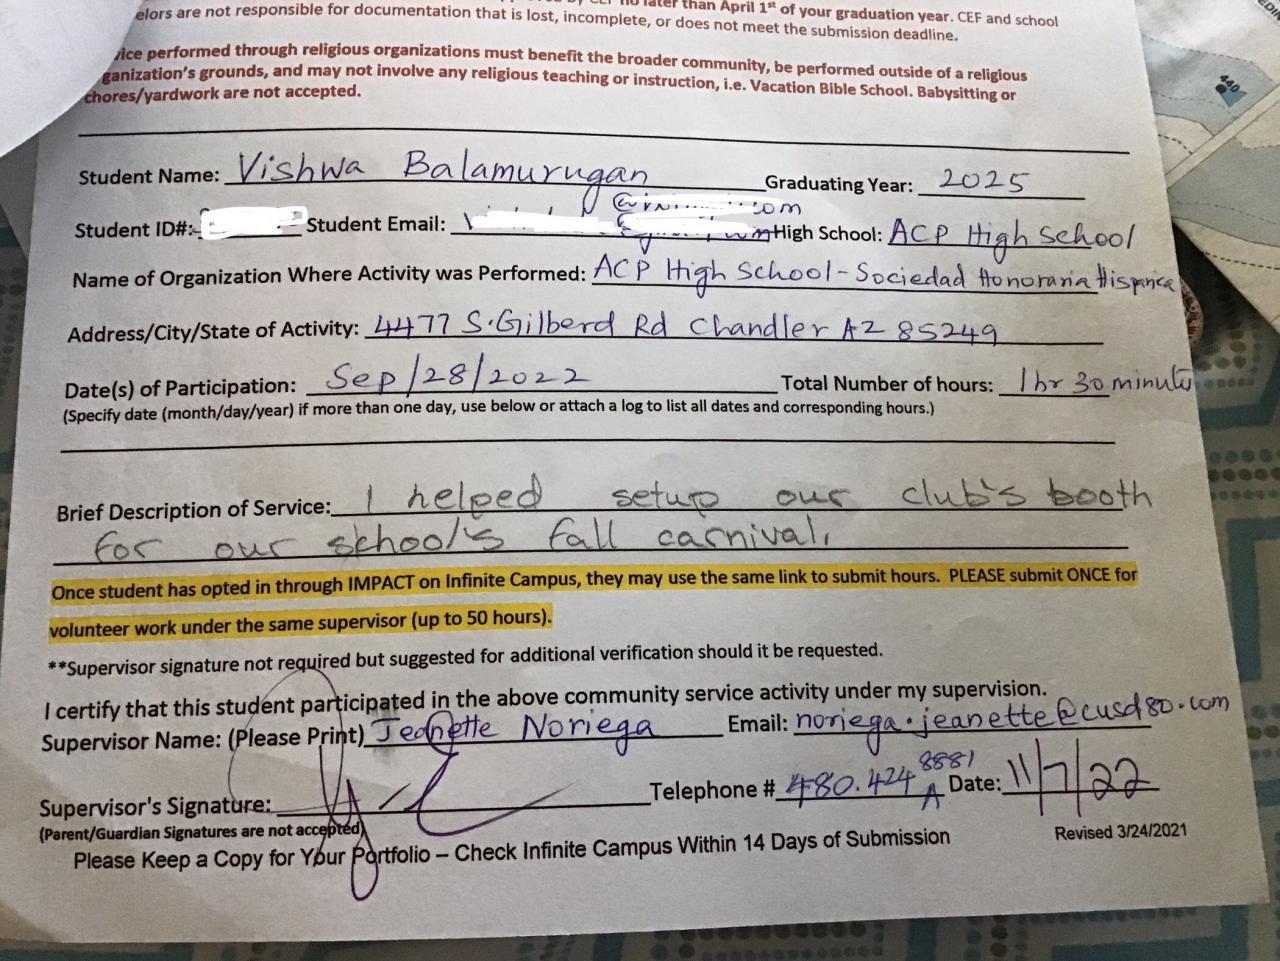 no later than April 1st of your graduation year. CEF and school
elors are not responsible for documentation that is lost, incomplete, or does not meet the submission deadline.
vice performed through religious organizations must benefit the broader community, be performed outside of a religious
ganization's grounds, and may not involve any religious teaching or instruction, i.e. Vacation Bible School. Babysitting or
chores/yardwork are not accepted.
Student Name: Vishwa Balamurugan Graduating Year: 2025
Student ID#: Student Email: High School: ACP High School
Name of Organization Where Activity was Performed: ACP High School - Sociedad Honoraria Hispánica
Address/City/State of Activity: 4477 S. Gilberd Rd Chandler AZ 85249
Date(s) of Participation: Sep/28/2022 Total Number of hours: 1 hr 30 minutes
(Specify date (month/day/year) if more than one day, use below or attach a log to list all dates and corresponding hours.)
Brief Description of Service: I helped setup our club's booth
for our school's fall carnival.
Once student has opted in through IMPACT on Infinite Campus, they may use the same link to submit hours. PLEASE submit ONCE for
volunteer work under the same supervisor (up to 50 hours).
**Supervisor signature not required but suggested for additional verification should it be requested.
I certify that this student participated in the above community service activity under my supervision.
Supervisor Name: (Please Print) Jeanette Noriega Email: noriega.jeanette@cusd80.com
Supervisor's Signature: Telephone # 480.424 8881 Date: 11/7/22
(Parent/Guardian Signatures are not accepted)
Please Keep a Copy for Your Portfolio – Check Infinite Campus Within 14 Days of Submission
Revised 3/24/2021
440